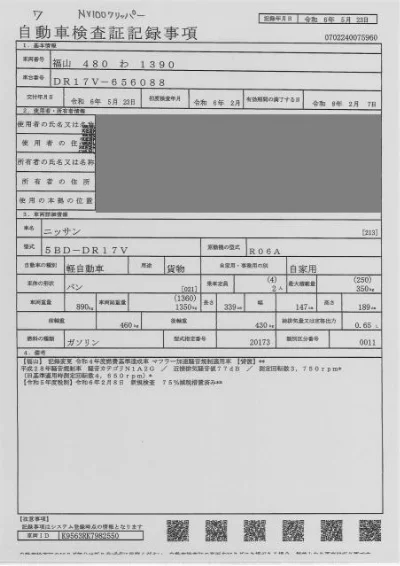 ワ NV100クリッパー
記録年月日 令和 6年 5月 23日
自動車検査証記録事項
0702240075960
1. 基本情報
車両番号 福山 480 わ 1390
車台番号 DR17V-656088
交付年月日 令和 6年 5月 23日 初度検査年月 令和 6年 2月 有効期間の満了する日 令和 8年 2月 7日
2. 使用者・所有者情報
使用者の氏名又は名称
使用者の住
所有者の氏名又は名称
所有者の住所
使用の本拠の位置
3. 車両詳細情報
車名 ニッサン [213]
型式 5BD-DR17V 原動機の型式 R06A
自動車の種別 軽自動車 用途 貨物 自家用・事業用の別 自家用
車体の形状 バン [021] 乗車定員 (4) 2人 最大積載量 (250) 350kg
車両重量 890kg 車両総重量 (1360) 1350kg 長さ 339 幅 147 高さ 189
前軸重 460kg 後軸重 430kg 総排気量又は定格出力 0.65
燃料の種類 ガソリン 型式指定番号 20173 類別区分番号 0011
4. 備考
【福山】 記録変更 令和4年度燃費基準達成車 マフラー加速騒音規制適用車 【貸渡】**
平成28年騒音規制車 騒音カテゴリN1A2G / 近接排気騒音値77dB / 測定回転数3,750rpm*
【令和5年度税制】令和6年2月8日 新規検査 75%減税措置済み**
【注意事項】
記録事項はシステム登録時点の情報となります
車両ID K9563RK7982550